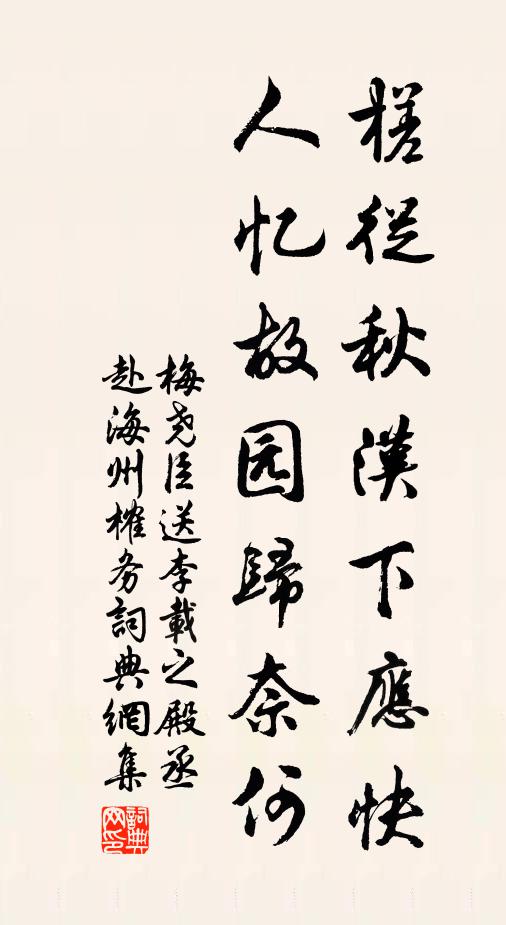 槎從秋漢下應快
人忆故园歸奈何
梅尧臣送李載之殿丞
赴海州榷务詞典網集
詞典
网印